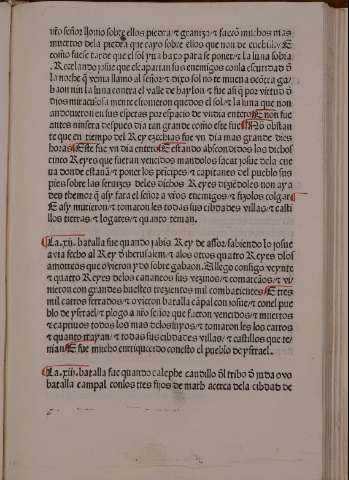 nr̃o señor llouio sobre ellos piedra ⁊ granizo ⁊ fuerõ muchos mas
muertos dela piedra que cayo sobre ellos que non de cuchillo ⁊ E
como fuese tarde que el sol yua baxo para se poner ⁊ la luna sobia
Recelando josue que escaparian sus enemigos con la escuridad đ
la noche q̃ venia llamo al señor ⁊ dixo sol no te mueua ocõtra ga
baon nin la luna contra el valle de haylon ⁊ fue asi q̃ por virtud đ
dios miraculosa mente estouieron quedos el sol ⁊ la luna que non
andouieron en sus esperas por espacio de vn dia entero E non fue
antes nin sera despues dia tan grande como este fue No obstan
te que en tiempo del Rey ezechias fue vn dia mas grande dies
horas Este fue vn dia entero E estando abscondidos los dichos
cinco Reyes que fueran vencidos mandolos sacar josue dela cue
ua donde estauã ⁊ poner los pricipes ⁊ capitanes del pueblo sus
pies sobre las seruizes delos dichos Reyes diziẽdoles non aya
des themor q̃ asy fara el señor a vr̃os enemigos ⁊ fizolos colgar
E asy murieron ⁊ tomaron les todas sus cibdades villas ⁊ casti
llos tierras ⁊ logares ⁊ quanto tenian.
La .xij. batalla fue quando jabis Rey de assor sabiendo lo josue
avia fecho al Rey đ iherusalem ⁊ alos otros quatro Reyes đlos
amorreos que auieron ydo sobre gabaon Allego consigo veynte
⁊ quatro Reyes delos cananeos sus vezinos ⁊ comarcãos ⁊ vi
nieron con grandes huestes trezientos mil combatientes E tres
mil carros ferrados ⁊ ouieron batalla cãpal con josue ⁊ con el pue
blo de ysrael ⁊ plogo a nr̃o señor que fueron vencidos ⁊ muertos
⁊ captiuos todos los mas dellos suyos ⁊ tomaron les los carros
⁊ quanto trayan ⁊ todas sus cibdades villas ⁊ castillos que te
nian E fue mucho enrriquecido con esto el pueblo de ysrael.
La .xiii. batalla fue quando calephe caudillo đl tribo đ juda ovo
batalla campal con los tres fijos de march acerca dela cibdad de